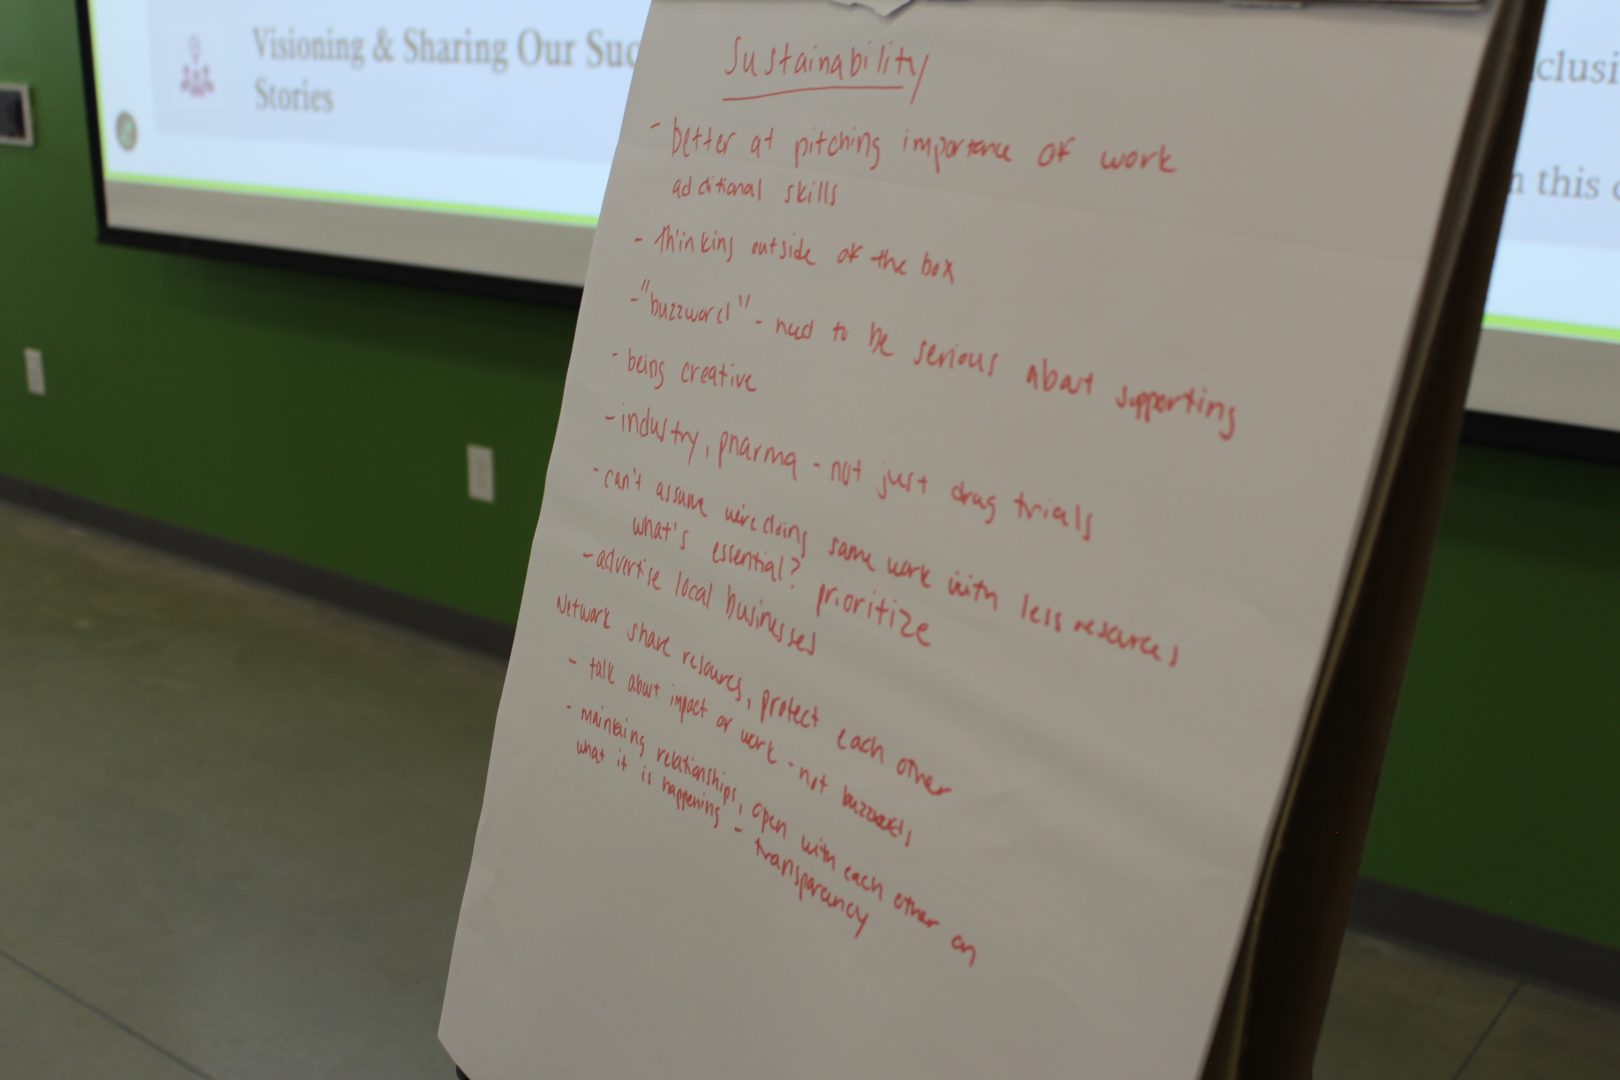 Visioning & Sharing Our Suc
Stories
clusi
n this c
Sustainability
- better at pitching importance of work
additional skills
- thinking outside of the box
- "buzzword" - need to be serious about supporting
- being creative
- industry, pharma - not just drug trials
- can't assume we're doing same work with less resources
what's essential? prioritize
- advertise local businesses
Network share resources, protect each other
- talk about impact or work - not buzzwords
- maintaining relationships, open with each other on
what it is happening - transparency